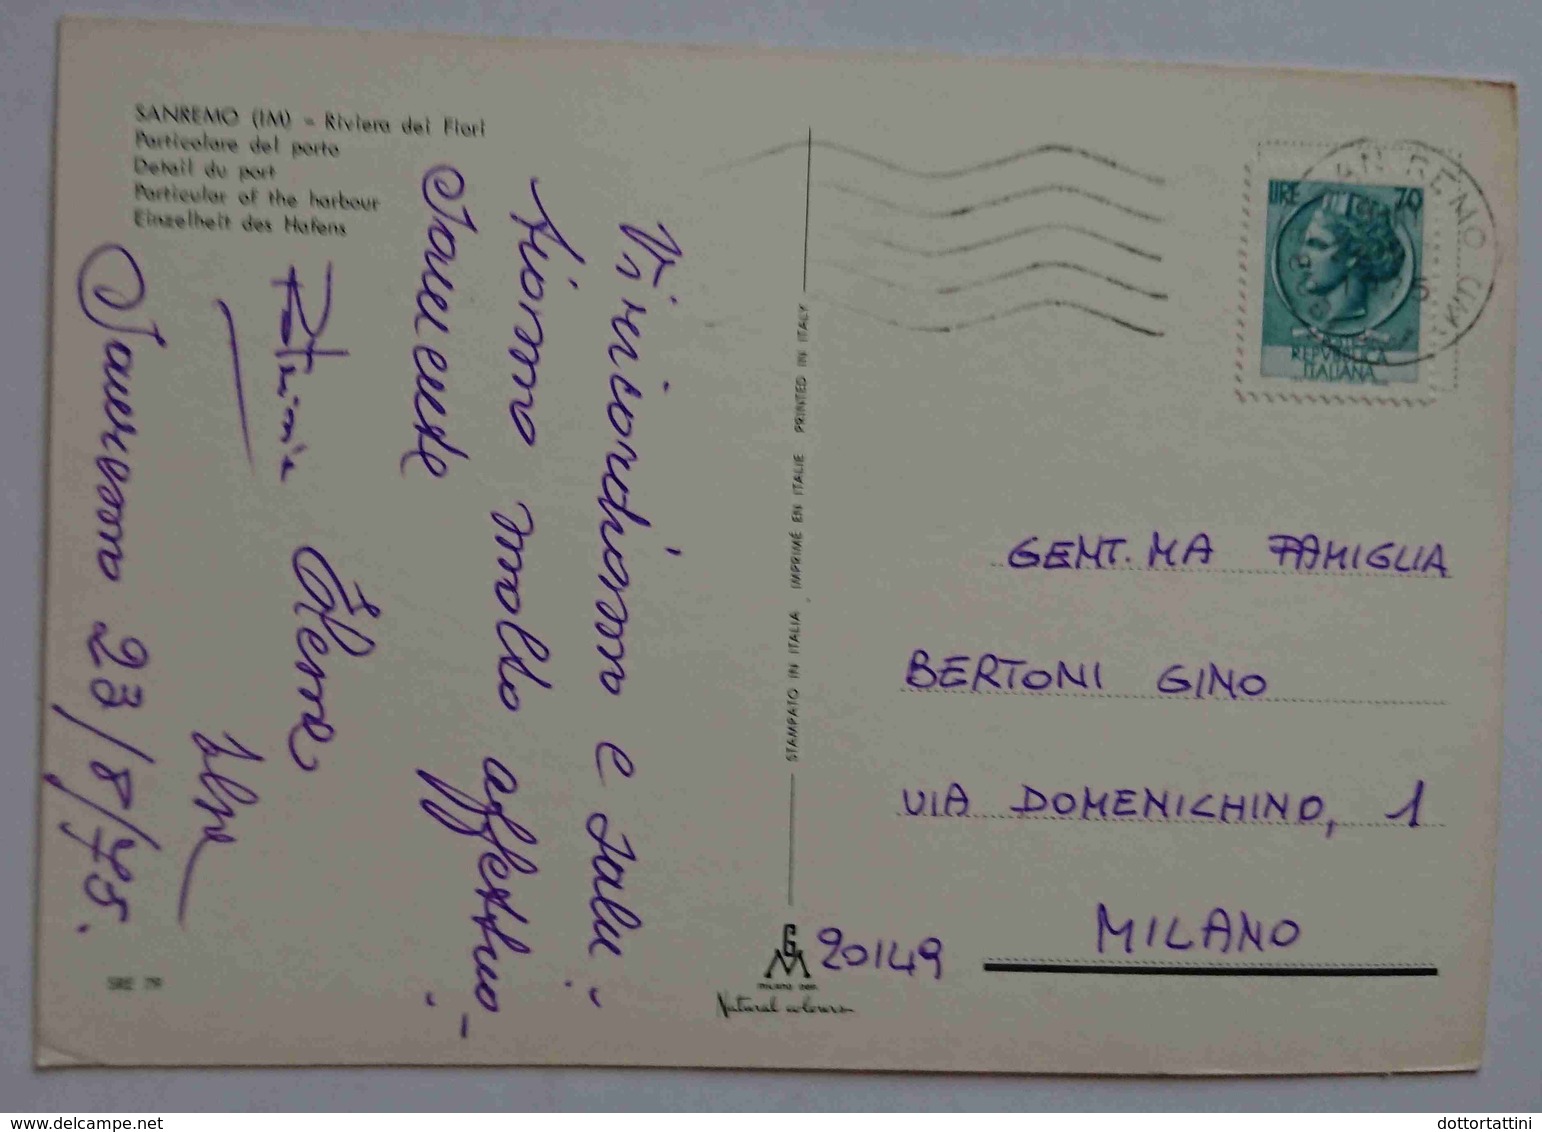 SANREMO (IM) - Riviera dei Fiori
Particolare del porto
Detail du port
Particular of the harbour
Einzelheit des Hafens
Vi ricordiamo e salu-
tiamo molto affettuo-
samente
Patrizia Elena
Sanremo 23/8/75.
SRE 79
STAMPATO IN ITALIA IMPRIMÉ EN ITALIE PRINTED IN ITALY
GM
MILANO DEP.
Natural colours
LIRE 70
REPVBBLICA
ITALIANA
SANREMO (IM)
GENT.MA FAMIGLIA
BERTONI GINO
VIA DOMENICHINO, 1
20149 MILANO
dottortattini